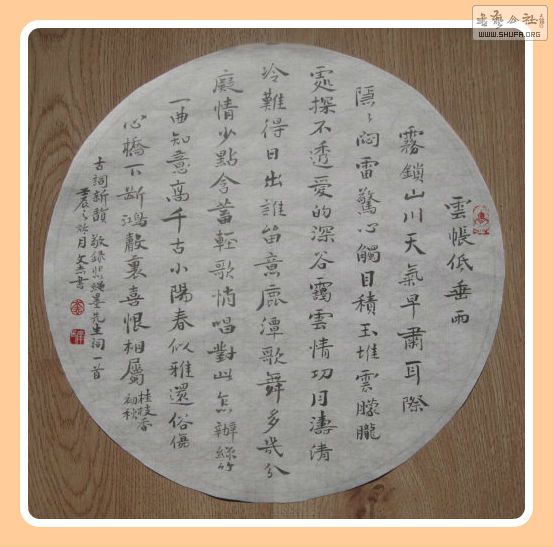 書藝公社
WWW.SHUFA.ORG
雲帳低垂雨
霧鎖山川天氣早肅耳際
隱々悶雷驚心觸目積玉堆雲朦朧
處探不透愛的深谷靄雲情切月濤清
冷難得日出誰笛意鹿潭歌舞多幾分
癡情少點含蓄輕歌悄唱對此怎辦絲竹
一曲知意高千古小陽春似雅還俗傷
心橋下斷鴻聲裏喜恨相屬
桂枝香
初秋
古詞新韻敬錄繩墨先生詞一首
壬辰之秋月文杰書